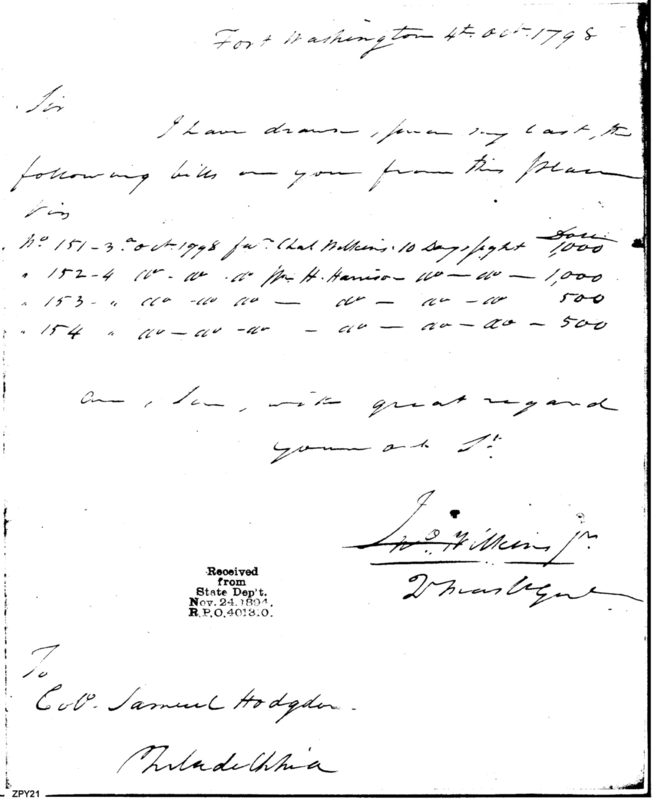 Fort Washington 4th. Oct. 1798
Sir
I have drawn, since my last, the
following bills on you from this place
Viz
No 151 - 3d Oct. 1798 favr. Chas Wilkins. 10 Days sight Dolls 1,000
" 152 - 4 do - do - do Wm H. Harrison do - do - 1,000
" 153 - " do - do do - do - do - do 500
" 154 " do - do - do - do - do - do - 500
am, Sir, with great regard
your ob St.
Jno. Wilkins Jr.
To
Colo. Samuel Hodgdon.
Philadelphia
Received
from
State Dep't.
Nov. 24. 1894.
R.P.O. 401310.
ZPY21